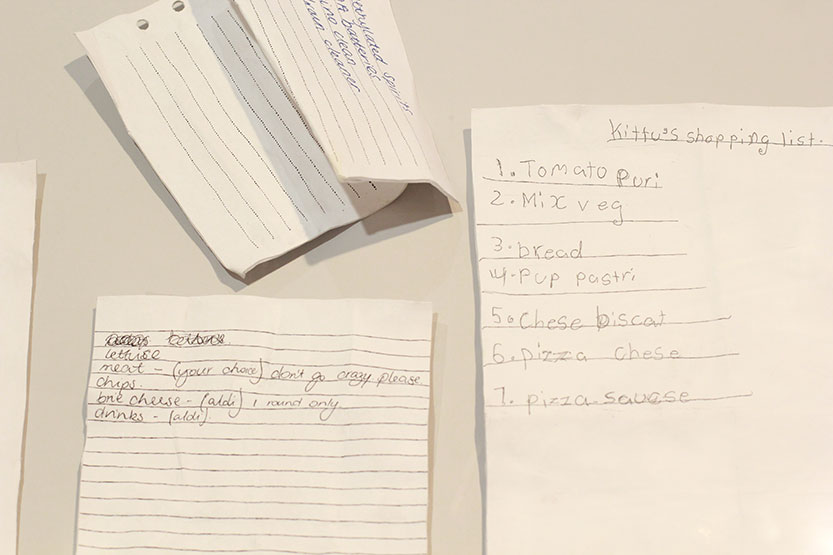 methylated spirits
AA batteries
no clean
drain cleaner
Kittu's shopping list.
1. Tomato puri
2. Mix veg
3. bread
4. Pup pastri
5. Chese biscat
6. pizza chese
7. pizza sauese
lettuise
meat - (your choice) don't go crazy please.
chips.
brie cheese - (aldi) 1 round only.
drinks - (aldi)